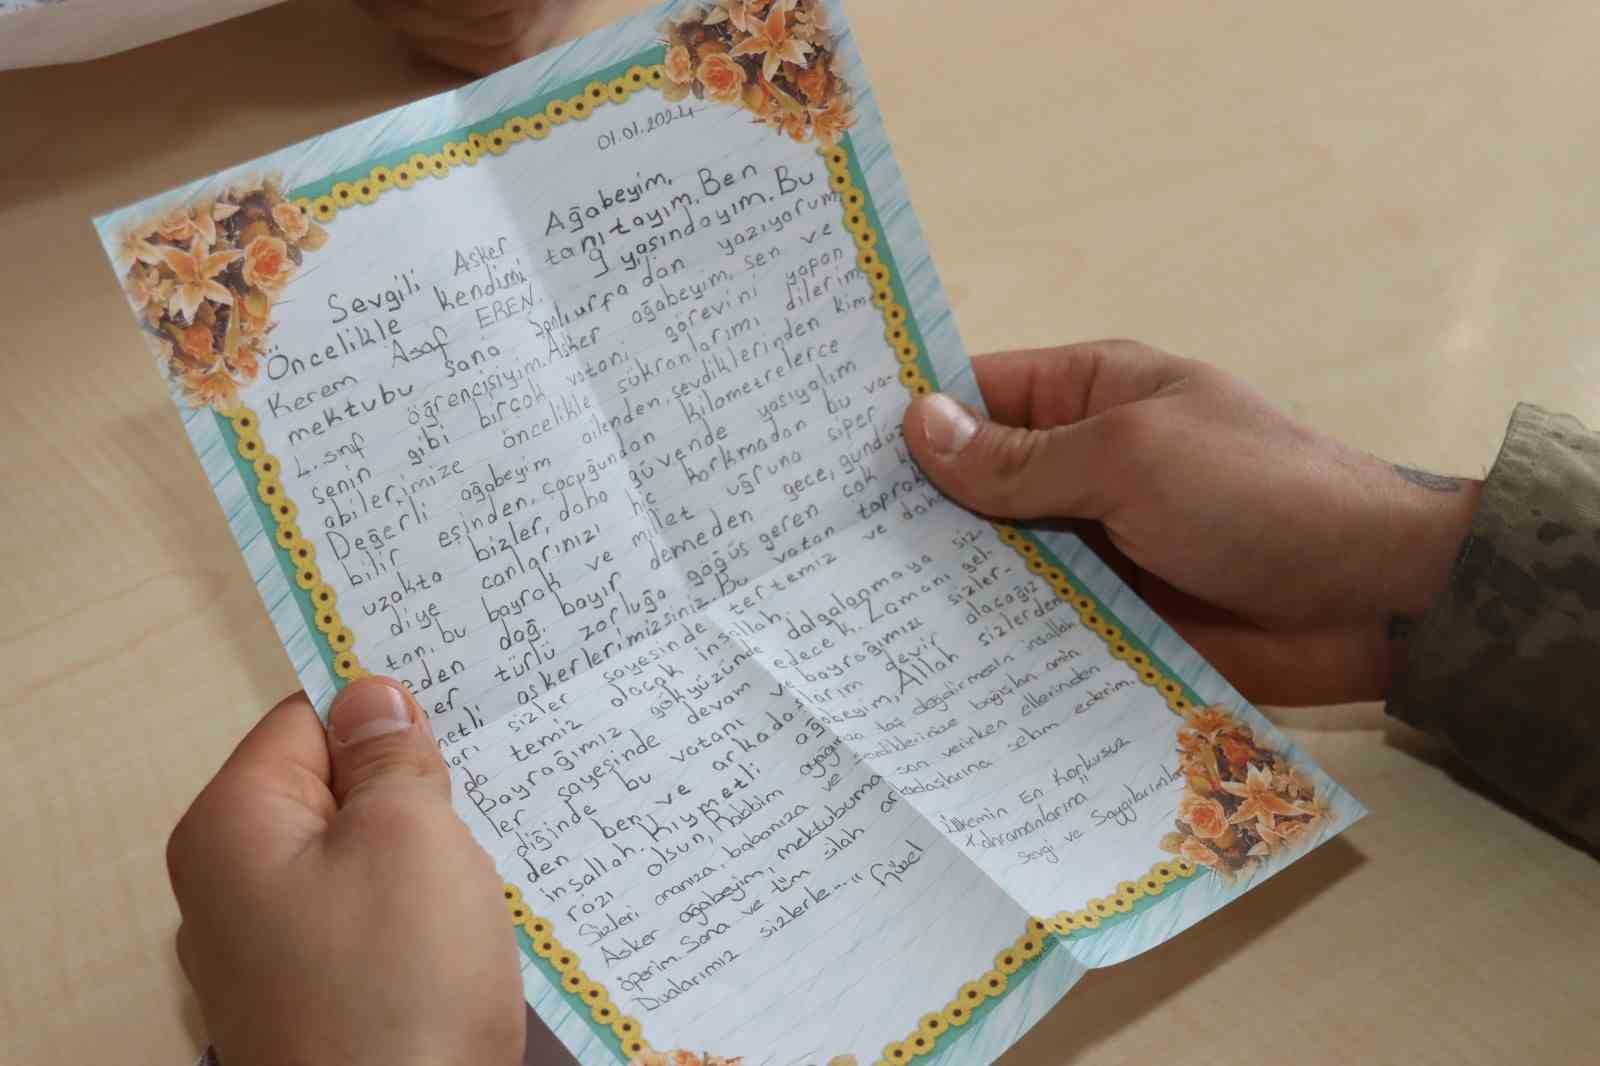 01.01.2024
Sevgili Asker Ağabeyim,
Öncelikle kendimi tanıtayım. Ben
Kerem Asaf EREN. 9 yaşındayım. Bu
mektubu sana Şanlıurfa dan yazıyorum
4. sınıf öğrencisiyim. Asker ağabeyim, sen ve
senin gibi birçok vatani görevini yapan
abilerimize öncelikle şükranlarımı dilerim.
Değerli ağabeyim ailenden, sevdiklerinden kim-
bilir eşinden, çocuğundan kilometrelerce
uzakta bizler, daha güvende yaşıyalım
diye canlarınızı hiç korkmadan bu va-
tan, bu bayrak ve millet uğruna siper
eden dağ, bayır demeden gece, gündüz
er türlü zorluğa göğüs geren çok
metli askerlerimizsiniz. Bu vatan toprak
ları sizler sayesinde tertemiz ve daha
da temiz olacak inşallah.
Bayrağımız gökyüzünde dalgalanmaya siz-
ler sayesinde devam edecek. Zamanı gel-
diğinde bu vatanı ve bayrağımızı sizler-
den ben ve arkadaşlarım devir alacağız
inşallah. Kıymetli ağabeyim, Allah sizlerden
razı olsun, Rabbim ayağınıza taş değdirmesin inşallah
Sizleri ananıza, babanıza ve sevdiklerinize bağışlar amin
Asker ağabeyim, mektubuma son verirken ellerinden
öperim. Sana ve tüm silah arkadaşlarına selam ederim.
Dualarımız sizlerle..."
Güzel Ülkemin En Korkusuz
Kahramanlarına
Sevgi ve Saygılarımla